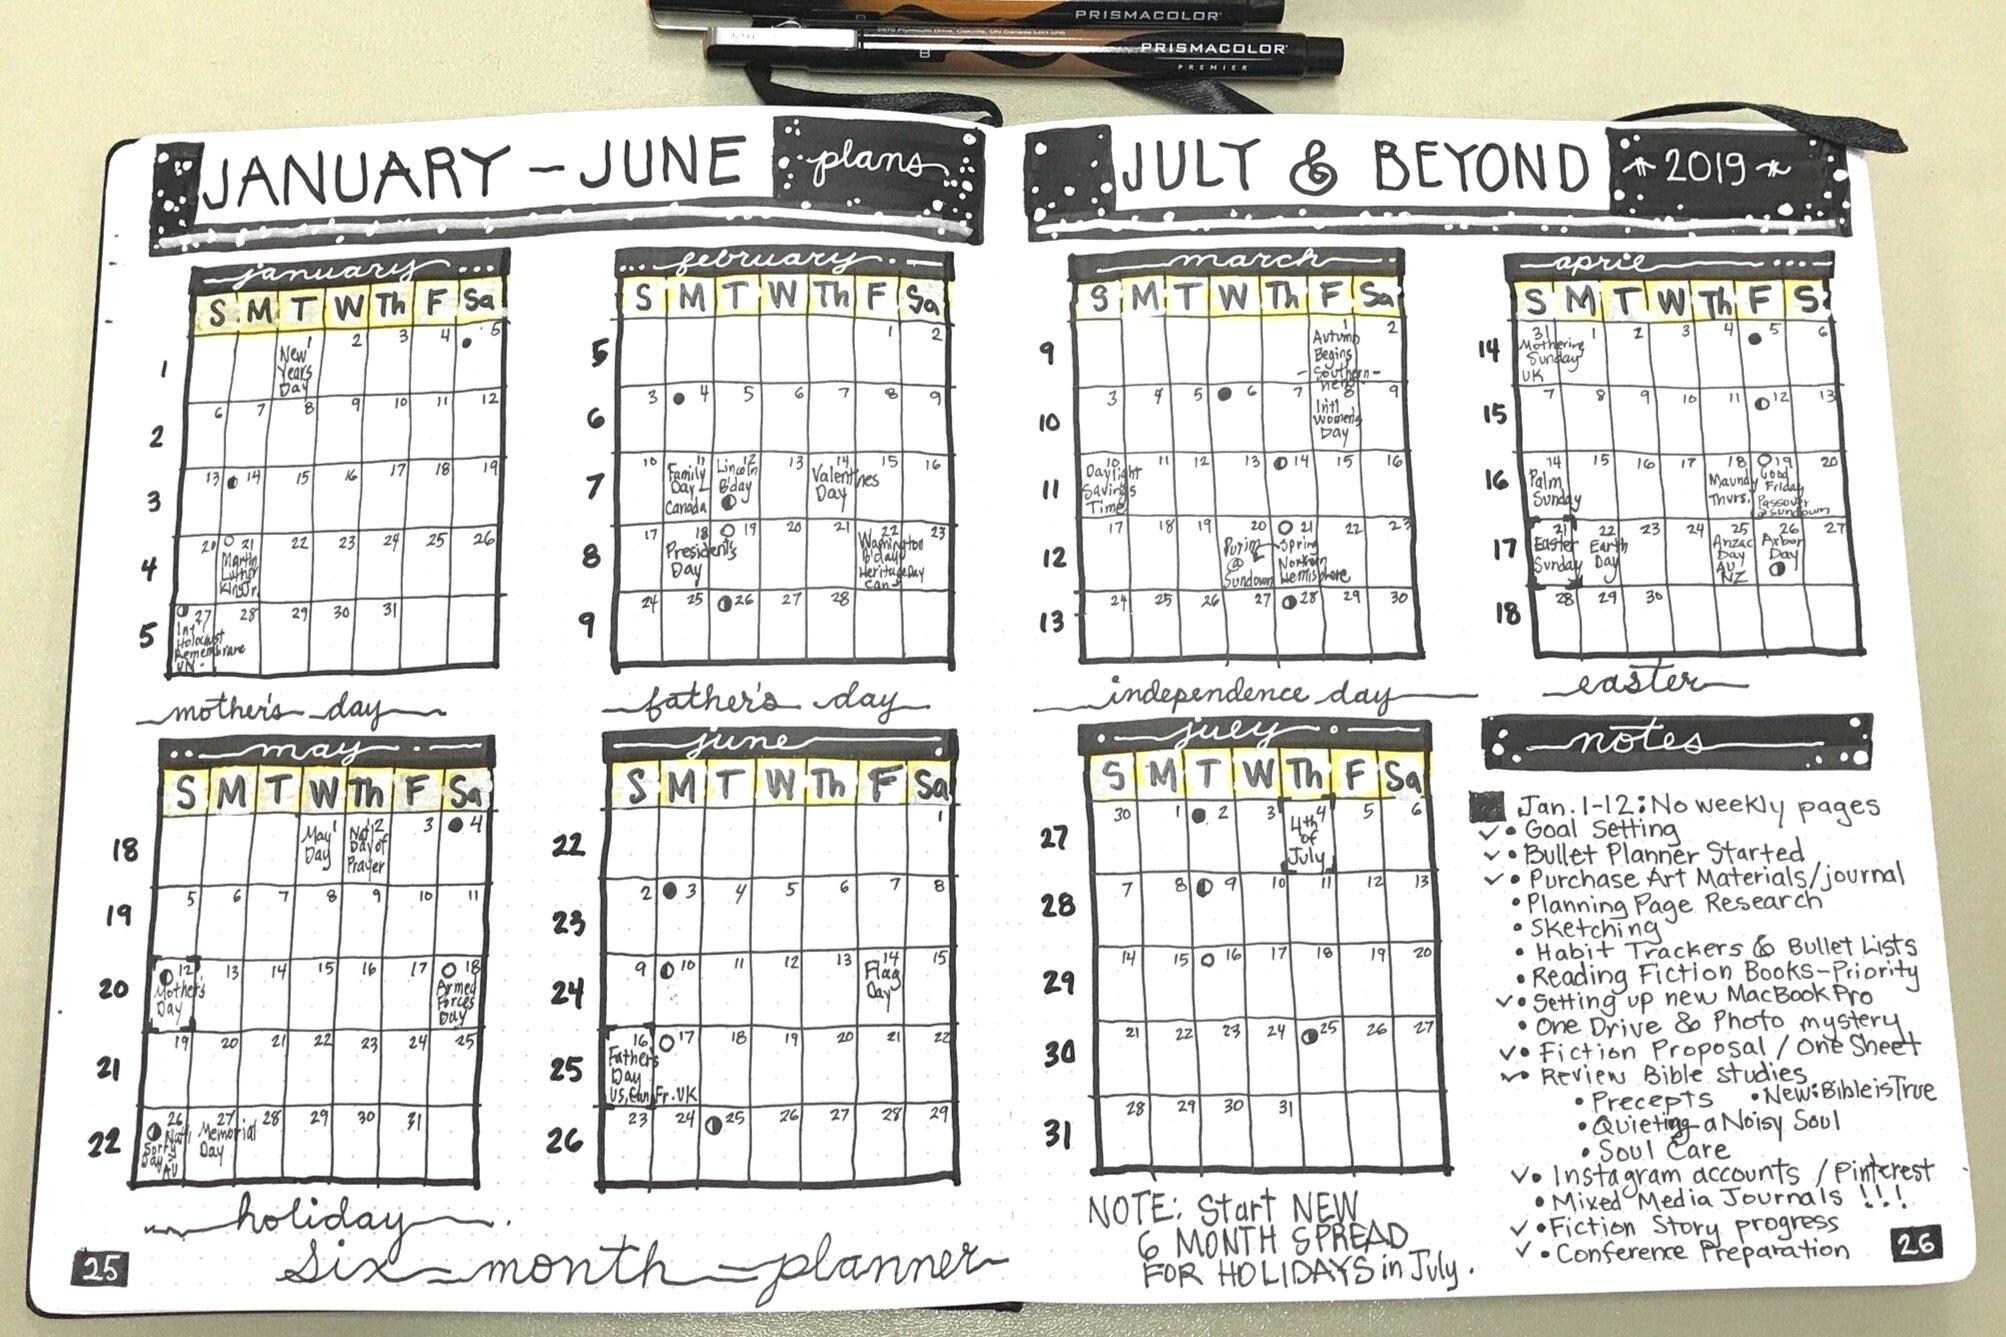 PRISMACOLOR
2870 Plymouth Drive, Oakville, ON Canada L6H 5R8
B
PRISMACOLOR
PREMIER
JANUARY - JUNE plans
january
S M T W Th F Sa
1 New Years Day 1 2 3 4 5
2 6 7 8 9 10 11 12
3 13 14 15 16 17 18 19
4 20 21 Martin Luther King Jr. 22 23 24 25 26
5 27 Int Holocaust Remembrance UN. 28 29 30 31
february
S M T W Th F Sa
5 1 2
6 3 4 5 6 7 8 9
7 10 11 Family Day Canada 12 Lincoln B'day 13 14 Valentines Day 15 16
8 17 18 Presidents Day 19 20 21 22 Washington B'day Heritage Day Can 23
9 24 25 26 27 28
mother's day
father's day
may
S M T W Th F Sa
18 May Day 1 Nat'l Day of Prayer 2 3 4
19 5 6 7 8 9 10 11
20 12 Mother's Day 13 14 15 16 17 18 Armed Forces Day
21 19 20 21 22 23 24 25
22 26 Nat'l Sorry Day AU 27 Memorial Day 28 29 30 31
june
S M T W Th F Sa
22 1
23 2 3 4 5 6 7 8
24 9 10 11 12 13 14 Flag Day 15
25 16 Father's Day US, Can, Fr. UK 17 18 19 20 21 22
26 23 24 25 26 27 28 29
holiday
six-month-planner
25
JULY & BEYOND 2019
march
S M T W Th F Sa
9 1 Autumn Begins -Southern- 2
10 3 4 5 6 7 8 Int'l Women's Day 9
11 10 Daylight Savings Time 11 12 13 14 15 16
12 17 18 19 20 Purim @ Sundown 21 Spring Northern Hemisphere 22 23
13 24 25 26 27 28 29 30
aprie
S M T W Th F S
14 31 Mothering Sunday UK 1 2 3 4 5 6
15 7 8 9 10 11 12 13
16 14 Palm Sunday 15 16 17 18 Maundy Thurs. 19 Good Friday Passover @ sundown 20
17 21 Easter Sunday 22 Earth Day 23 24 25 Anzac Day AU NZ 26 Arbor Day 27
18 28 29 30
independence day
easter
juey
S M T W Th F Sa
27 30 1 2 3 4 4th of July 5 6
28 7 8 9 10 11 12 13
29 14 15 16 17 18 19 20
30 21 22 23 24 25 26 27
31 28 29 30 31
NOTE: Start NEW
6 MONTH SPREAD
FOR HOLIDAYS in July.
notes
Jan. 1-12: No weekly pages
✓ • Goal Setting
✓ • Bullet Planner Started
✓ • Purchase Art Materials/journal
• Planning Page Research
• Sketching
• Habit Trackers & Bullet Lists
• Reading Fiction Books-Priority
✓ • Setting up new MacBook Pro
• One Drive & Photo mystery
✓ • Fiction Proposal / One Sheet
✓ • Review Bible studies
• Precepts • New: Bible is True
• Quieting a Noisy Soul
• Soul Care
✓ • Instagram accounts / Pintcrest
• Mixed Media Journals !!!
✓ • Fiction Story progress
✓ • Conference Preparation
26